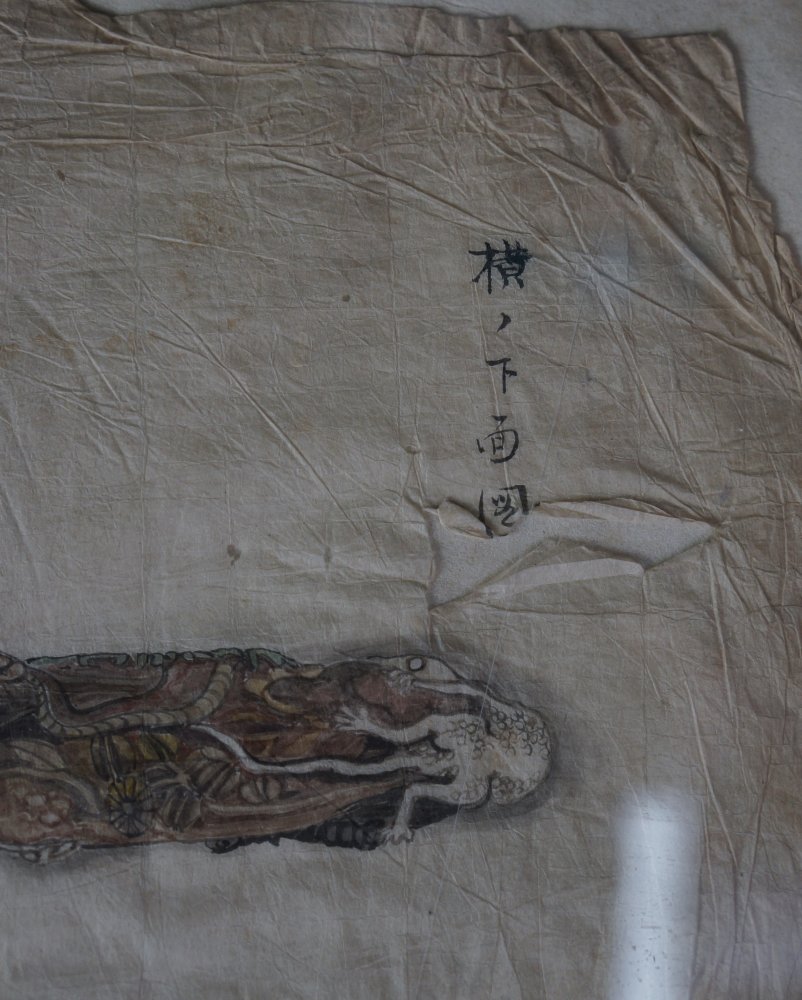 横ノ下面図